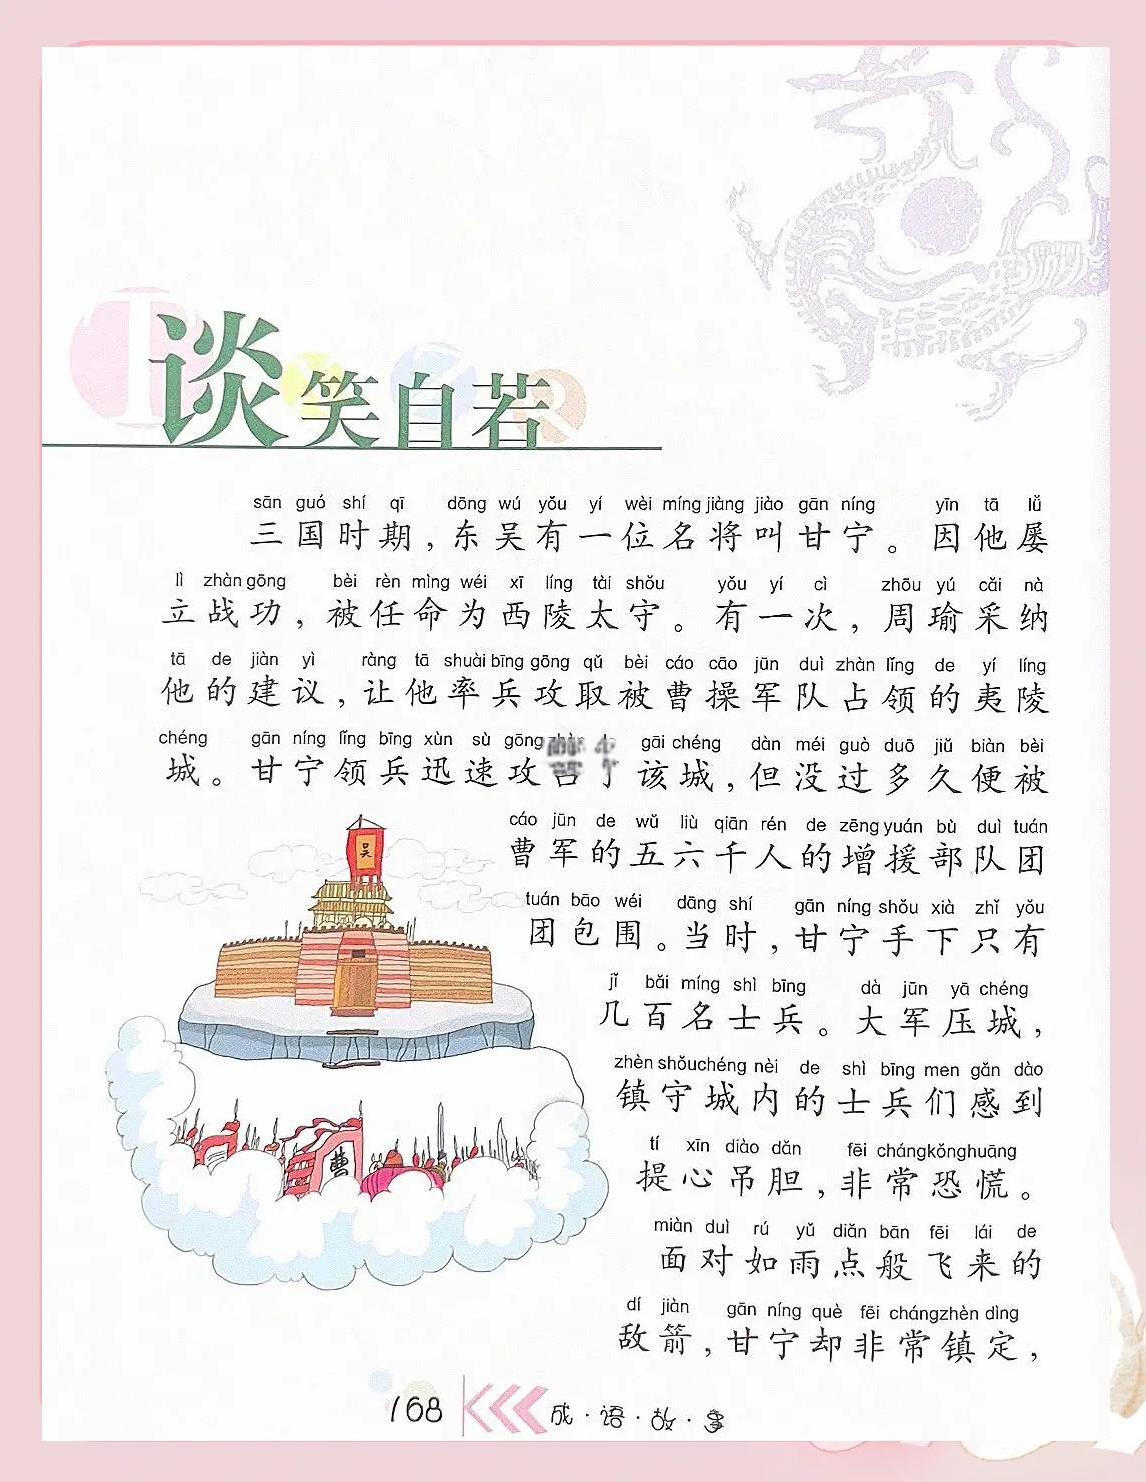 谈笑自若
sān guó shí qī dōng wú yǒu yí wèi míng jiàng jiào gān níng yīn tā lǚ
三国时期，东吴有一位名将叫甘宁。因他屡
lì zhàn gōng bèi rèn mìng wéi xī líng tài shǒu yǒu yí cì zhōu yú cǎi nà
立战功，被任命为西陵太守。有一次，周瑜采纳
tā de jiàn yì ràng tā shuài bīng gōng qǔ bèi cáo cāo jūn duì zhàn lǐng de yí líng
他的建议，让他率兵攻取被曹操军队占领的夷陵
chéng gān níng lǐng bīng xùn sù gōng gāi chéng dàn méi guò duō jiǔ biàn bèi
城。甘宁领兵迅速攻占了该城，但没过多久便被
cáo jūn de wǔ liù qiān rén de zēng yuán bù duì tuán
曹军的五六千人的增援部队团
tuán bāo wéi dāng shí gān níng shǒu xià zhǐ yǒu
团包围。当时，甘宁手下只有
jǐ bǎi míng shì bīng dà jūn yā chéng
几百名士兵。大军压城，
zhèn shǒu chéng nèi de shì bīng men gǎn dào
镇守城内的士兵们感到
tí xīn diào dǎn fēi cháng kǒng huāng
提心吊胆，非常恐慌。
miàn duì rú yǔ diǎn bān fēi lái de
面对如雨点般飞来的
dí jiàn gān níng què fēi cháng zhèn dìng
敌箭，甘宁却非常镇定，
吴
曹
168 成·语·故·事